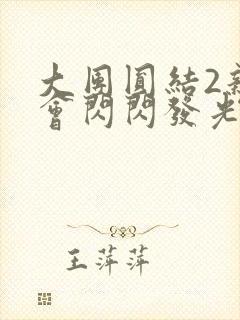 大團圓結2
會閃閃發光
王萍萍